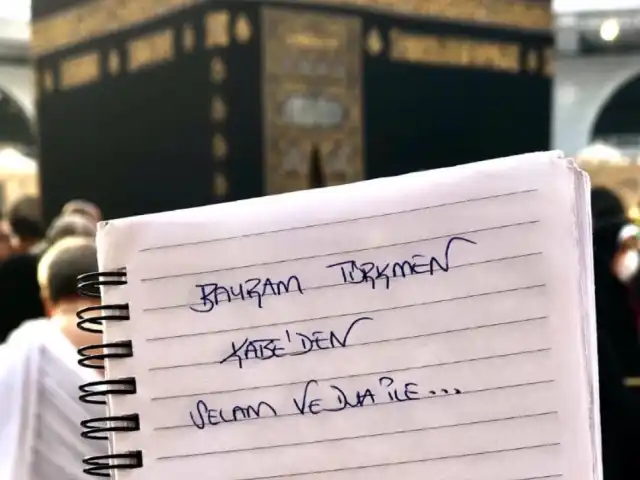 BAYRAM TÜRKMEN
KABE'DEN
SELAM VE DUA İLE...